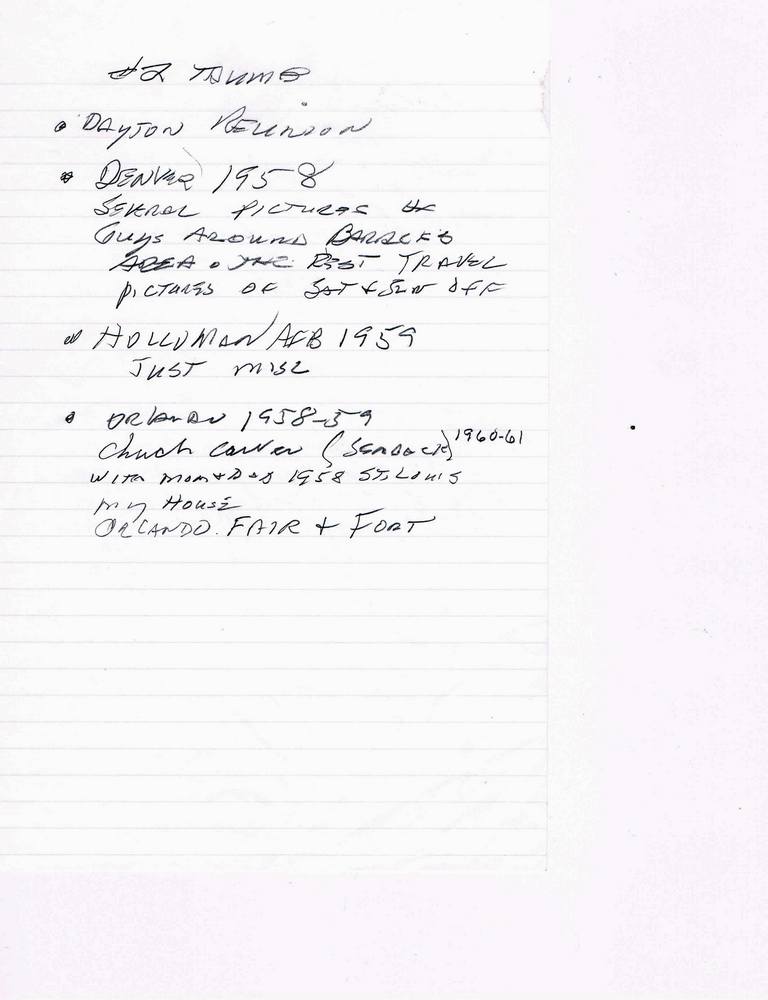 #2 THUMB
• DAYTON REUNION
• DENVER 1958
SEVERAL PICTURES OF
GUYS AROUND BARRACKS
AREA. THE REST TRAVEL
PICTURES OF SAT & SUN OFF
• HOLLOMAN AFB 1959
JUST MISC
• ORLANDO 1958-59
Chuck Carver 1960-61
WITH MOM & DAD 1958 ST. LOUIS
MY HOUSE
ORLANDO. FAIR & FORT